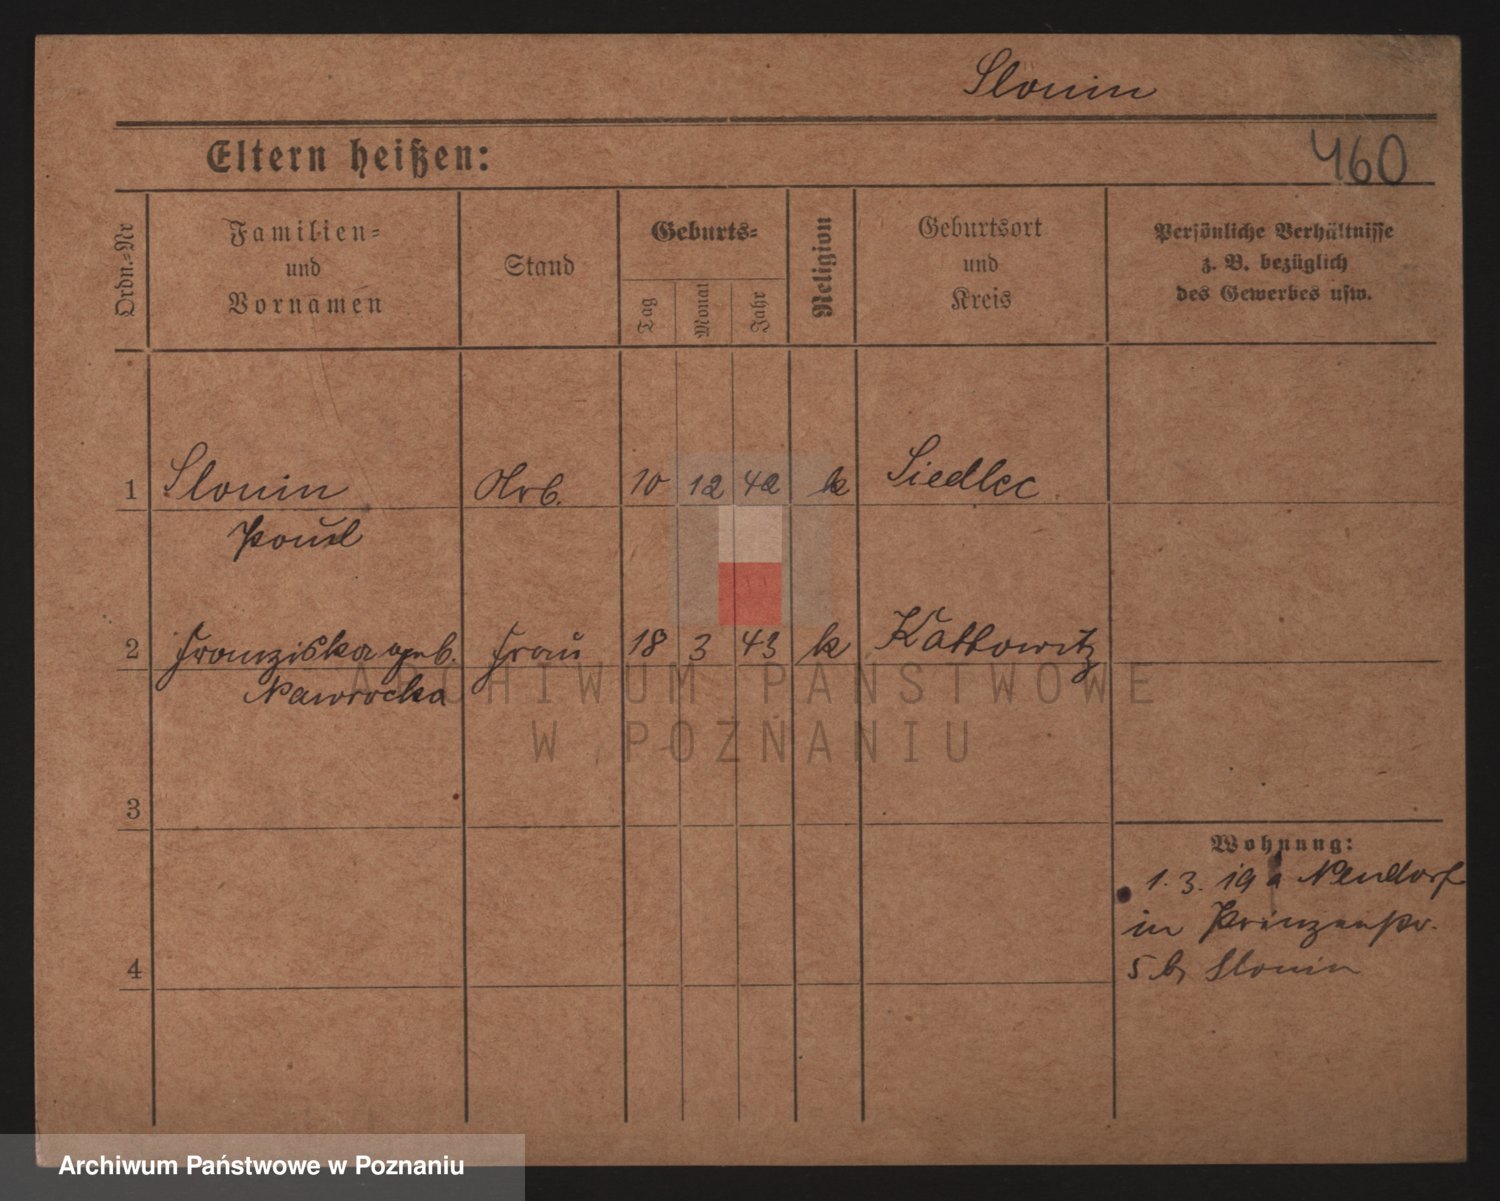 Slonin
Eltern heißen:
460
Ordn.-Nr
Familien-
und
Vornamen
Stand
Geburts-
Tag
Monat
Jahr
Religion
Geburtsort
und
Kreis
Persönliche Verhältnisse
z. B. bezüglich
des Gewerbes usw.
1 Slonin Arb. 10 12 42 k Siedlec
Paul
2 Franziska geb. Frau 18 3 43 k Kattowitz
Nawrocka
ARCHIWUM PAŃSTWOWE
W POZNANIU
3
Wohnung:
1. 3. 19 a Neudorf
in Prinzenstr.
5 b, Slonin
4
Archiwum Państwowe w Poznaniu